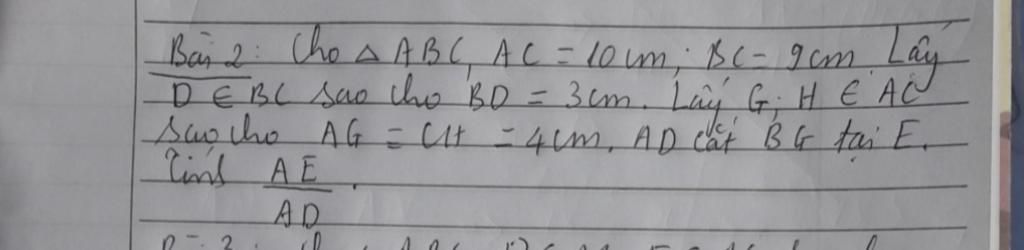 Bài 2: Cho △ABC, AC = 10cm; BC = 9cm. Lấy
D ∈ BC sao cho BD = 3cm. Lấy G; H ∈ AC
sao cho AG = CH = 4cm. AD cắt BG tại E.
Tính AE
AD